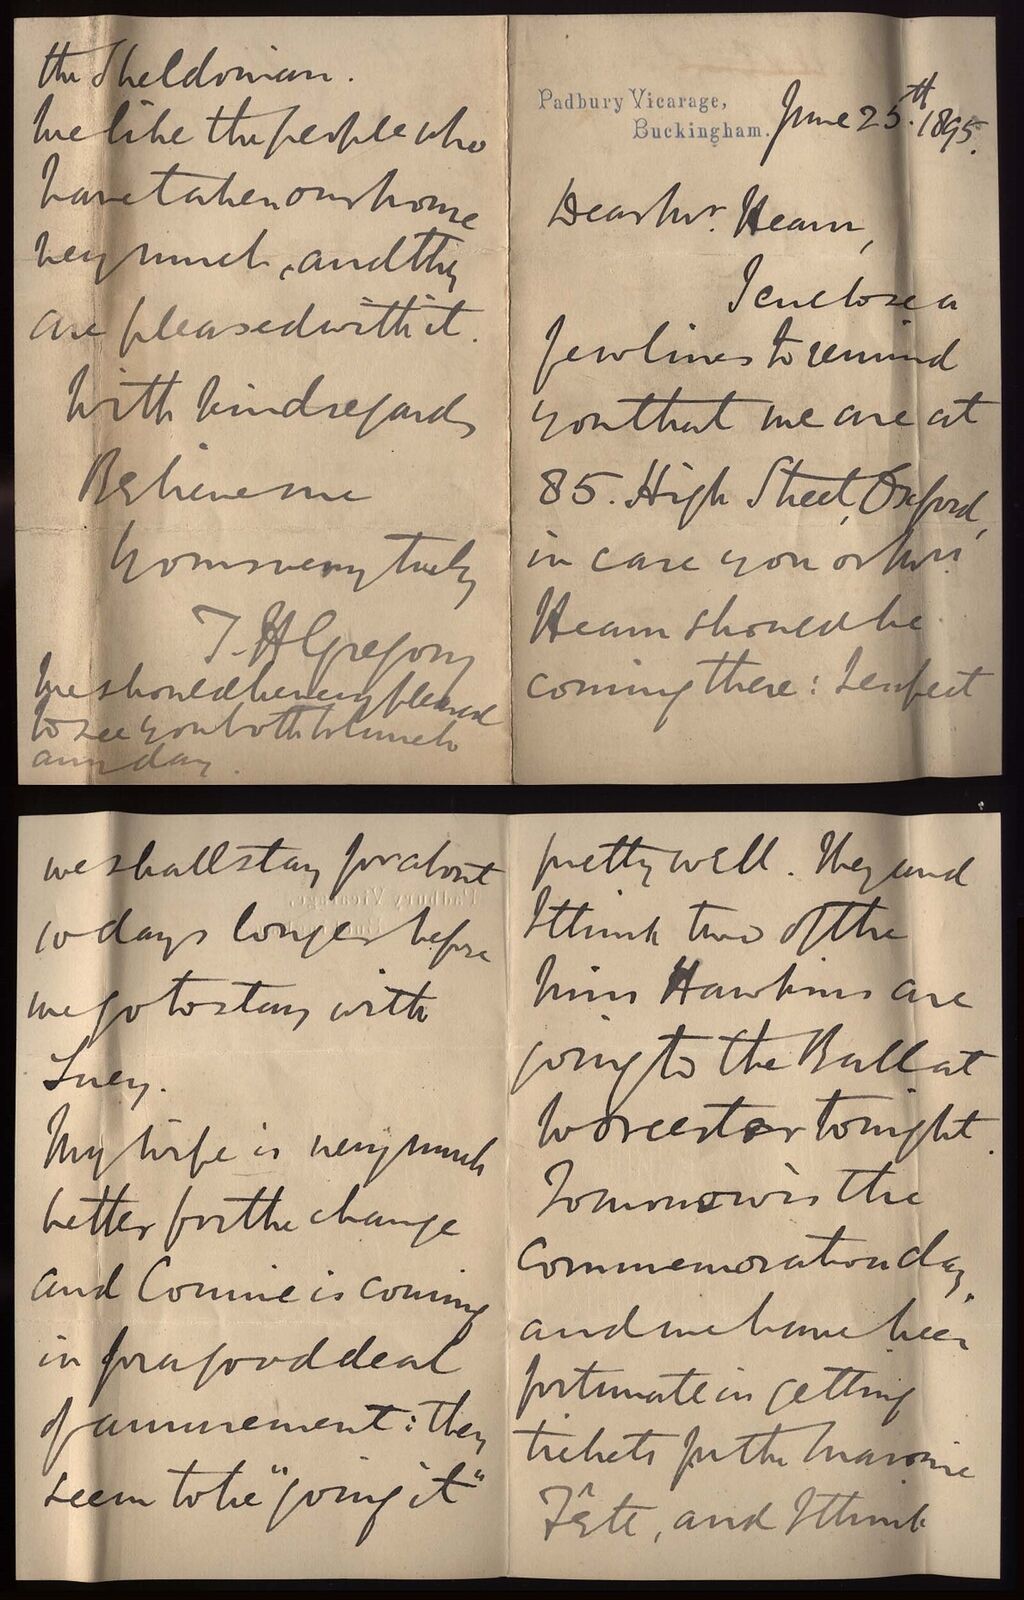 Padbury Vicarage,
Buckingham.
June 25th. 1895.
Dear Mr. Hearn,
I enclose a
few lines to remind
you that we are at
85. High Street, Oxford,
in case you or Mrs.
Hearn should be
coming there: I expect
we shall stay for about
10 days longer before
we go to stay with
Lucy.
My wife is very much
better for the change
and Connie is coming
in for a good deal
of amusement: they
seem to be "going it"
pretty well. They and
I think two of the
Miss Hawkins are
going to the Ball at
Worcester tonight.
Tomorrow is the
Commemoration day,
and we have been
fortunate in getting
tickets for the Masonic
Fête, and I think
the Sheldonian.
We like the people who
have taken our house
very much, and they
are pleased with it.
With kind regards
Believe me
Yours very truly
T. H Gregory
We should be very pleased
to see you both to lunch
any day.